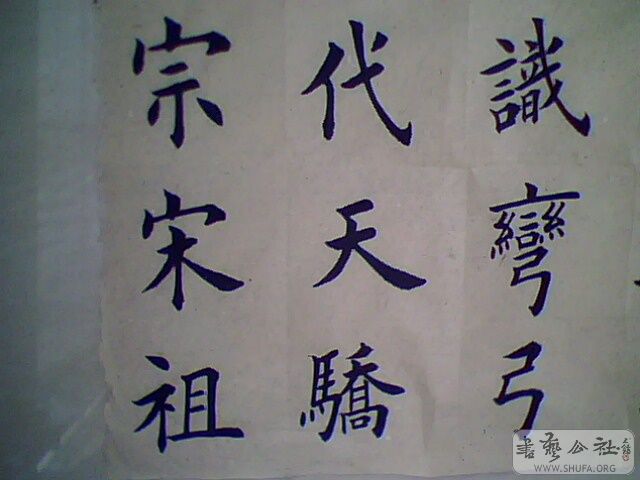 識彎弓
代天驕
宗宋祖
書藝公社
WWW.SHUFA.ORG